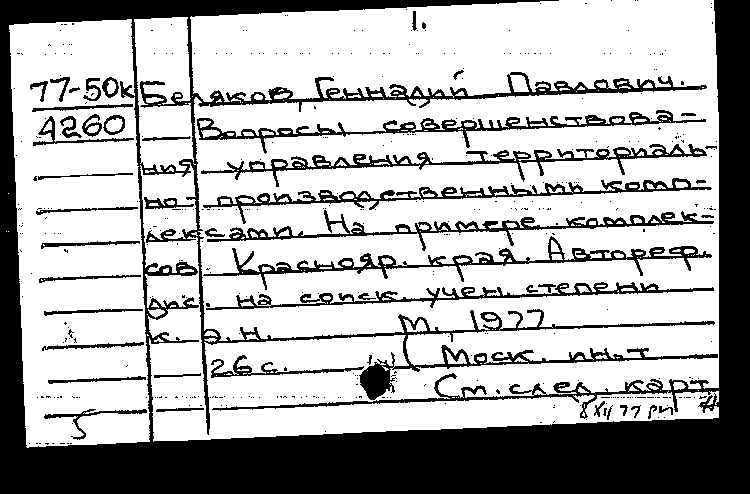 1.
77-50к Беляков, Геннадий Павлович.
4260 Вопросы совершенствова-
ния управления территориаль-
но-производственными комп-
лексами. На примере комплек-
сов Краснояр. края. Автореф.
дис. на соиск. учен. степени
к. э. н. М., 1977.
26 с. (Моск. ин-т
См. след. карт
5 8 XII 77